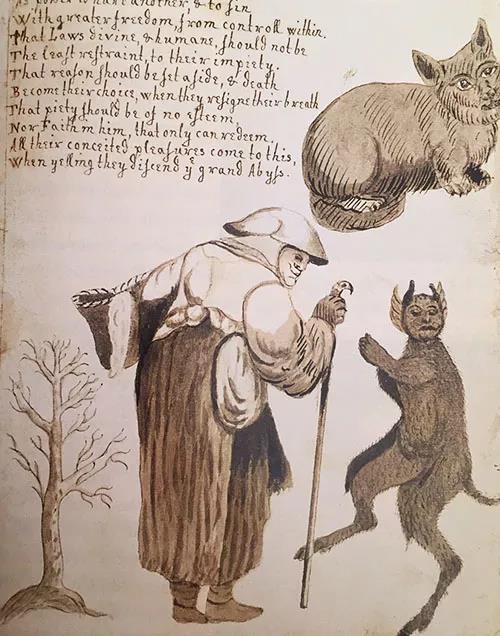 as power to hurt another, & to sin
With greater freedom from controll within.
That Laws divine, & humane, ſhould not be
The leaſt reſtraint, to their impiety.
That reaſon ſhould be ſet aſide, & death
Become their choice, when they reſigne their breath
That piety ſhould be of no eſteem,
Nor Faith in him, that only can redeem
All their conceited pleaſures come to this,
When yelling they diſcend yᵉ grand Abyſs.